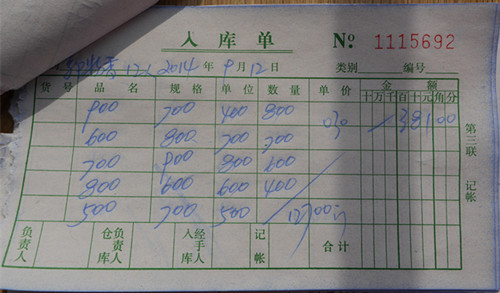 入库单 No 1115692
2014年9月12日 类别 编号
货号 品名 规格 单位 数量 单价 金额
十万千百十元角分
900 700 400 800
600 800 700 700
700 900 800 600
800 600 600 400
500 700 500
合计
负责人 仓库负责人 入库经手人 记帐
第三联 记帐